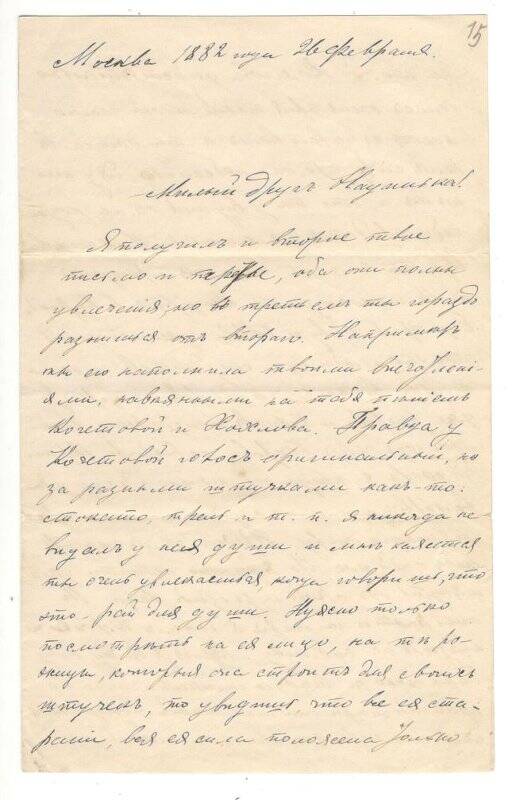 15
Москва 1882 года 26 февраля.
Милый другъ Наумивна!
Я получилъ и второе твое
письмо и первое, оба они полны
увлеченія, но въ третьемъ ты гораздо
разнишься отъ второго. Напримѣръ
ты его наполнила твоими впечатлені-
ями, навѣянными на тебя пѣніемъ
Кочетовой и Хохлова. Правда у
Кочетовой голосъ оригинальный, но
за разными штучками какъ-то:
стокато, трель и т. п. я никогда не
видалъ у нея души и мнѣ кажется
ты очень увлекаешься, когда говоришь, что
это – рай для души. Нужно только
посмотрѣть на ея лицо, на тѣ ро-
жицы, которыя она строитъ для своихъ
штучекъ, то увидишь, что все ея ста-
раніе, вся ея сила положена только